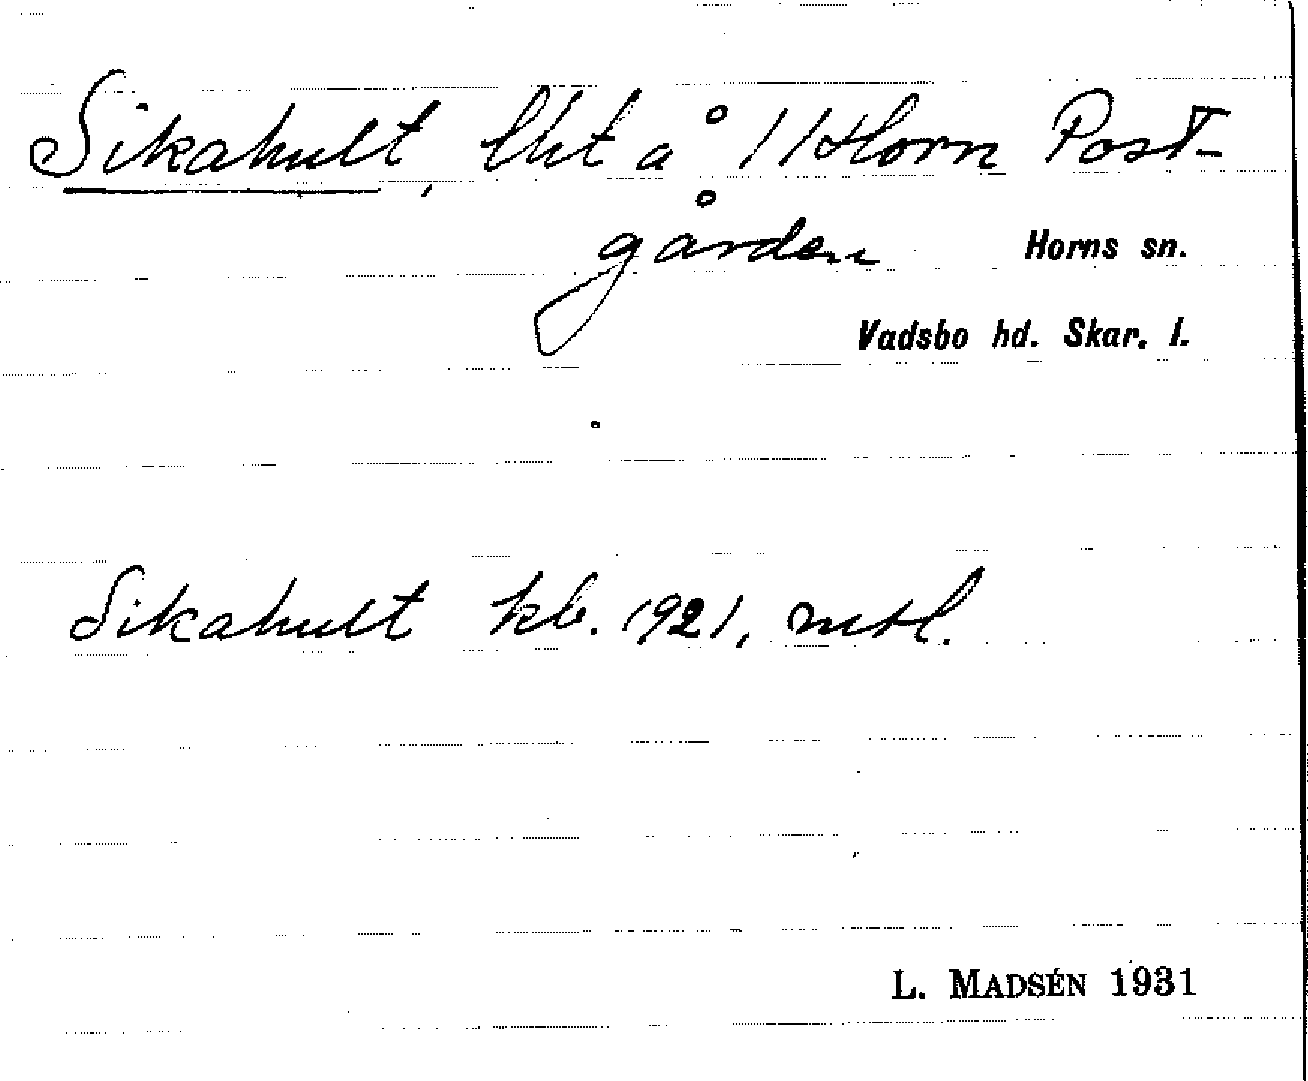 Sikahult, lht å 1/1 Horn Post-
gården
Horns sn.
Vadsbo hd. Skar. l.
Sikahult kb. 1921, mtl.
L. MADSÉN 1931